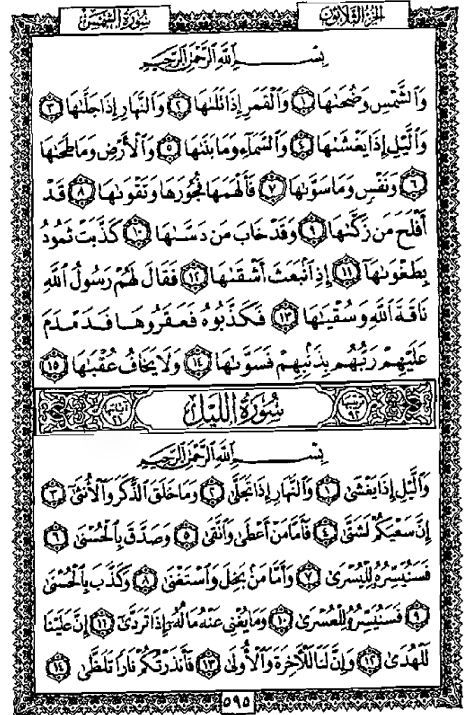 الجزء الثلاثون
سورة الشمس
بِسْمِ اللَّهِ الرَّحْمَٰنِ الرَّحِيمِ
وَالشَّمْسِ وَضُحَىٰهَا ١ وَالْقَمَرِ إِذَا تَلَىٰهَا ٢ وَالنَّهَارِ إِذَا جَلَّىٰهَا ٣
وَاللَّيْلِ إِذَا يَغْشَىٰهَا ٤ وَالسَّمَاءِ وَمَا بَنَىٰهَا ٥ وَالْأَرْضِ وَمَا طَحَىٰهَا
٦ وَنَفْسٍ وَمَا سَوَّىٰهَا ٧ فَأَلْهَمَهَا فُجُورَهَا وَتَقْوَىٰهَا ٨ قَدْ
أَفْلَحَ مَن زَكَّىٰهَا ٩ وَقَدْ خَابَ مَن دَسَّىٰهَا ١٠ كَذَّبَتْ ثَمُودُ
بِطَغْوَىٰهَا ١١ إِذِ انۢبَعَثَ أَشْقَىٰهَا ١٢ فَقَالَ لَهُمْ رَسُولُ اللَّهِ
نَاقَةَ اللَّهِ وَسُقْيَٰهَا ١٣ فَكَذَّبُوهُ فَعَقَرُوهَا فَدَمْدَمَ
عَلَيْهِمْ رَبُّهُم بِذَنۢبِهِمْ فَسَوَّىٰهَا ١٤ وَلَا يَخَافُ عُقْبَٰهَا ١٥
ترتيبها ٩٢ سُورَةُ اللَّيْلِ آياتها ٢١
بِسْمِ اللَّهِ الرَّحْمَٰنِ الرَّحِيمِ
وَاللَّيْلِ إِذَا يَغْشَىٰ ١ وَالنَّهَارِ إِذَا تَجَلَّىٰ ٢ وَمَا خَلَقَ الذَّكَرَ وَالْأُنثَىٰ ٣
إِنَّ سَعْيَكُمْ لَشَتَّىٰ ٤ فَأَمَّا مَنْ أَعْطَىٰ وَاتَّقَىٰ ٥ وَصَدَّقَ بِالْحُسْنَىٰ ٦
فَسَنُيَسِّرُهُ لِلْيُسْرَىٰ ٧ وَأَمَّا مَنۢ بَخِلَ وَاسْتَغْنَىٰ ٨ وَكَذَّبَ بِالْحُسْنَىٰ
٩ فَسَنُيَسِّرُهُ لِلْعُسْرَىٰ ١٠ وَمَا يُغْنِي عَنْهُ مَالُهُ إِذَا تَرَدَّىٰ ١١ إِنَّ عَلَيْنَا
لَلْهُدَىٰ ١٢ وَإِنَّ لَنَا لَلْآخِرَةَ وَالْأُولَىٰ ١٣ فَأَنذَرْتُكُمْ نَارًا تَلَظَّىٰ ١٤
٥٩٥